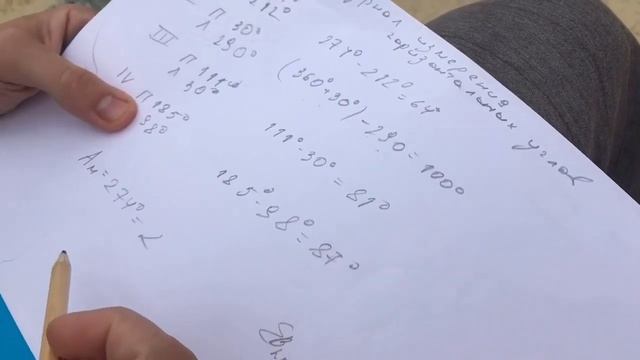 журнал измерения
горизонтальных углов
212°
П 30°
III
Л 290°
П 111°
Л 30°
IV
П 185°
98°
Ам = 274° = L
274° - 212° = 64°
(360° + 30°) - 290 = 100°
111° - 30° = 81°
185° - 98° = 87°